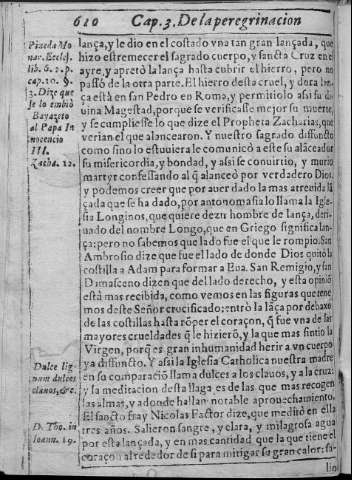 610 Cap. 3. De la peregrinacion
Pineda Mo
nar. Eccles.
lib. 6. 2. p.
cap. 20. §.
3. Dize que
se lo embiò
Bayazeto
al Papa In
nocencio
III.
Zacha. 12.
Dulce lig
num dulces
clauos, &c.
D. Tho. in
Ioann. 19.
lança, y le dio en el costado vna tan gran lançada, que
hizo estremecer el sagrado cuerpo, y sancta Cruz en el
ayre, y apretò la lança hasta cubrir el hierro, pero no
passò de la otra parte. El hierro desta cruel, y dora lan-
ça està en san Pedro en Roma, y permitiolo assi su di
uina Magestad, porque se verificasse mejor su muerte,
y se cumpliesse lo que dize el Propheta Zacharias, que
verian el que alancearon. Y nuestro sagrado diffuncto
como sino lo estuuiera le comunicò a este su alãceador
su misericordia, y bondad, y assi se conuirtio, y murio
martyr confessando al q̃ alanceò por verdadero Dios,
y podemos creer que por auer dado la mas atreuida lã
çada que se ha dado, por antonomasia lo llama la Igle
sia Longinos, que quiere dezir hombre de lança, deri-
uado del nombre Longo, que en Griego significa lan-
ça: pero no sabemos que lado fue el que le rompio. San
Ambrosio dize que fue el lado de donde Dios quitò la
costilla a Adam para formar a Eua. San Remigio, y san
Damasceno dizen que del lado derecho, y esta opiniõ
està mas recibida, como vemos en las figuras que tene
mos deste Señor crucificado; entrò la lãça por debaxo
de las costillas hasta rõper el coraçon, q̃ fue vna de las
mayores crueldades q̃ le hizierõ, y la que mas sintio la
Virgen, porq̃ es gran inhumanidad herir a vn cuerpo
ya diffuncto. Y assi la Iglesia Catholica nuestra madre
en su comparaciõ llama dulces a los clauos, y a la cruz:
y la meditacion desta llaga es de las que mas recogen
las almas, y adonde hallan notable aprouechamiento.
El sancto fray Nicolas Factor dize, que meditò en ella
tres años. Salieron sangre, y clara, y milagrosa agua
por esta lançada, y en mas cantidad que la que tiene el
coraçon alrededor de si para mitigar su gran calor: sa-
lio